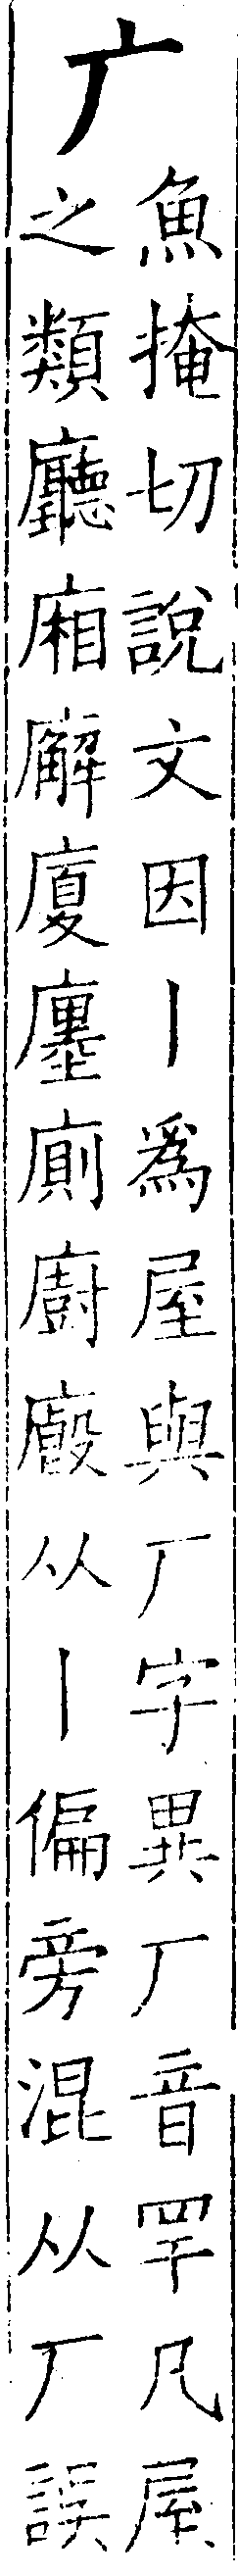 广
魚掩切說文因丨為屋與厂字異厂音罕凡屋
之類廳廂廨廈廛廁廚廄从丨偏旁混从厂誤